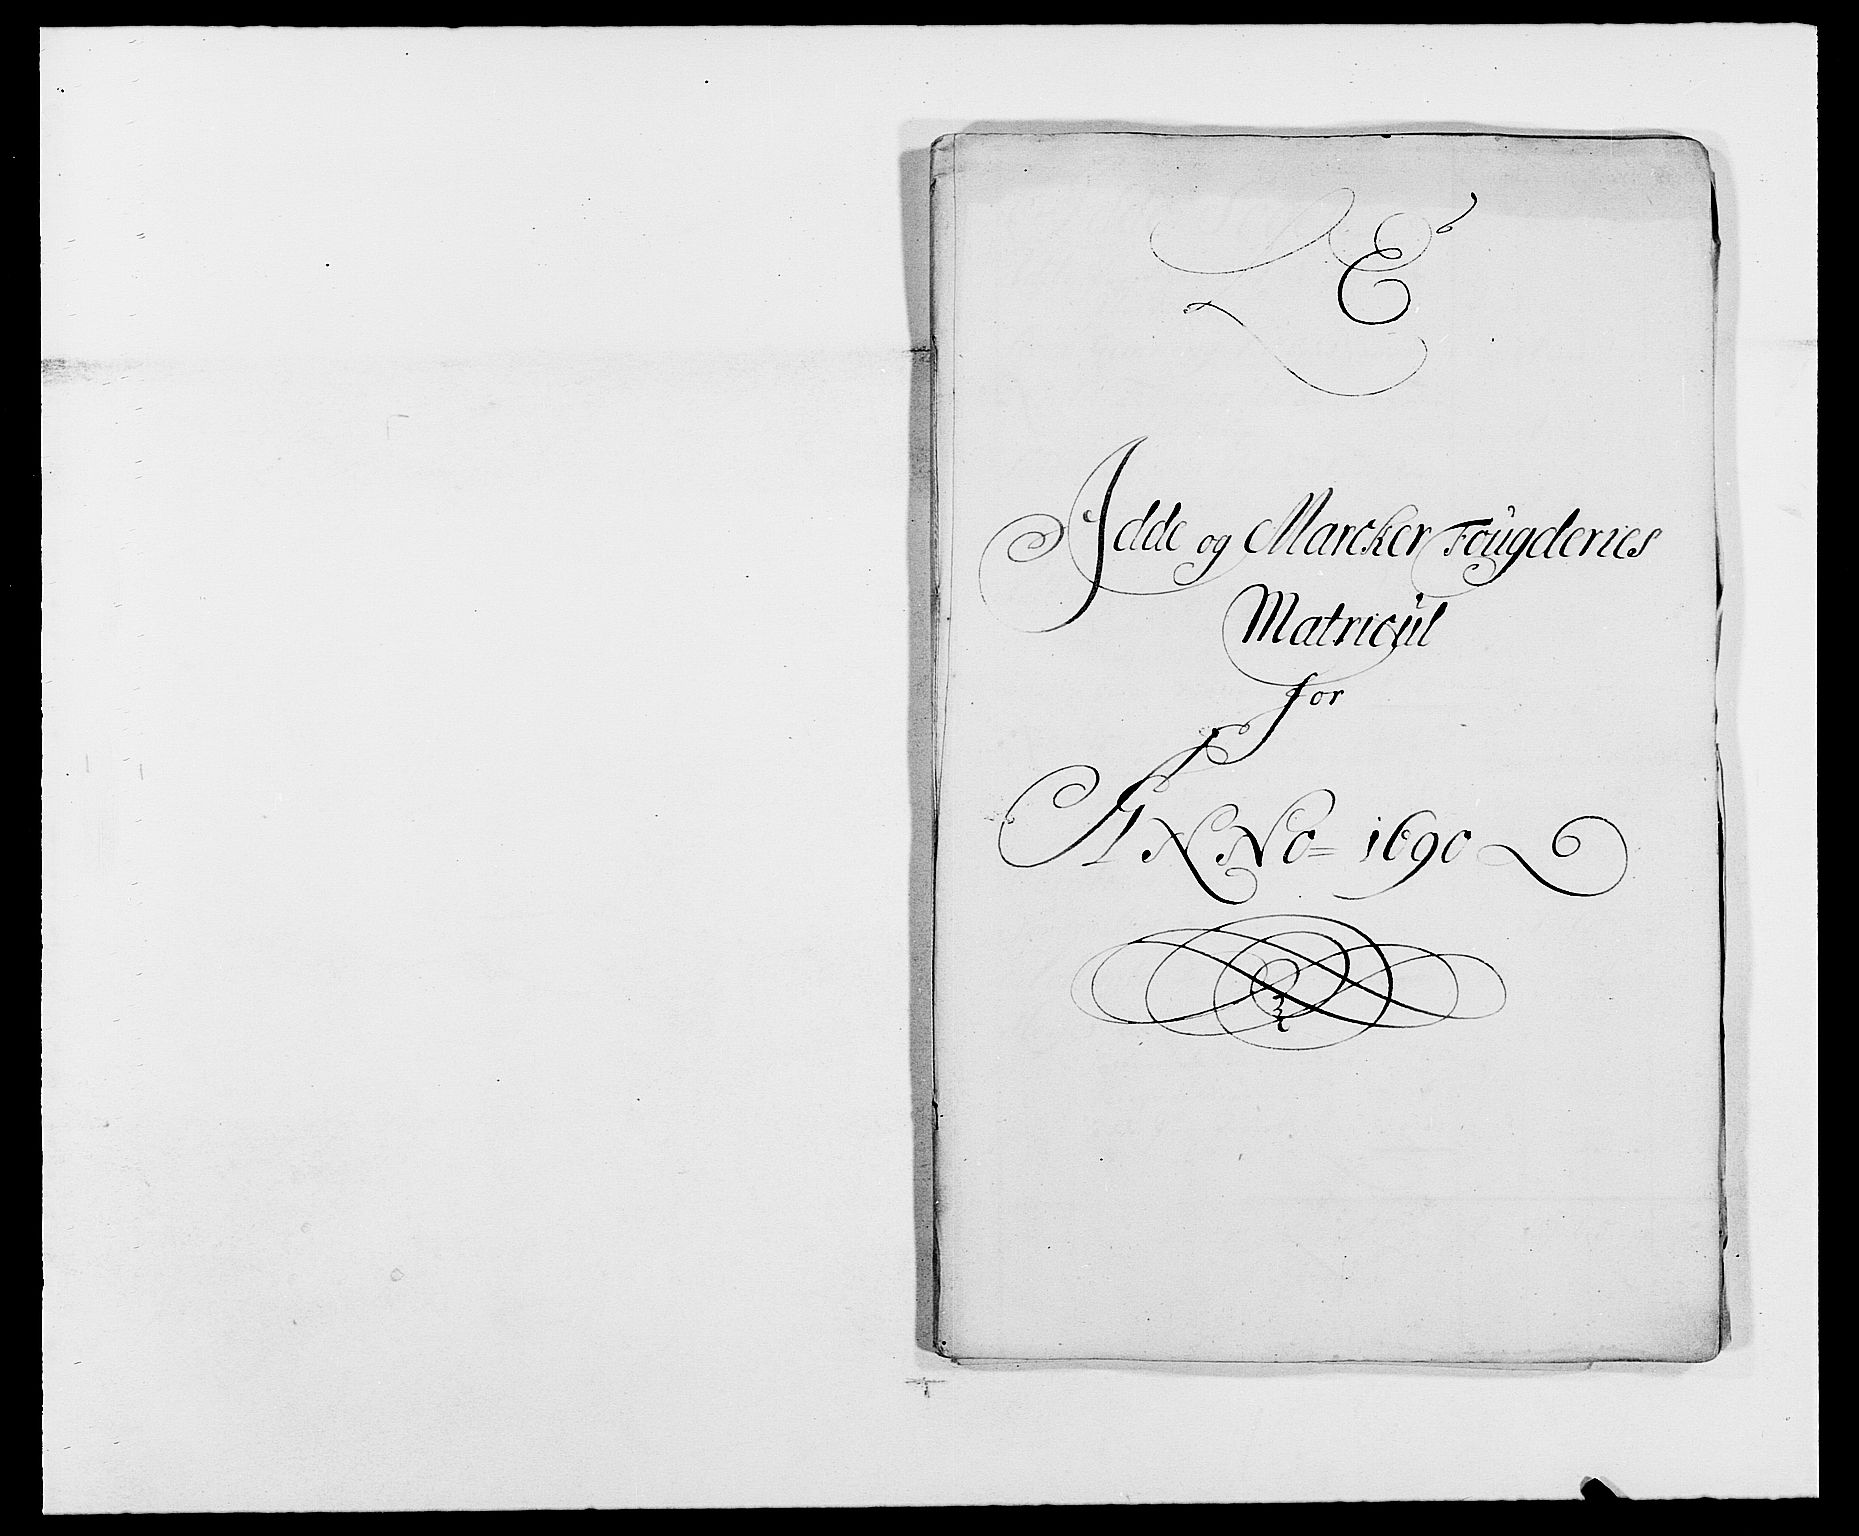 E
Idde og Marcker Fougderies
Matricul
for
ANNO= 1690